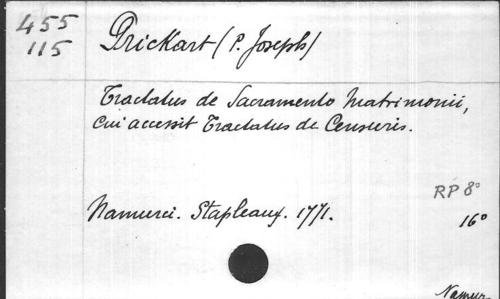 455
115
Prickart (P. Joseph)
Tractatus de Sacramento Matrimonii,
cui accessit Tractatus de Censuris.
RP 8°
Namurci. Stapleaux. 1771.
16°
Namur.